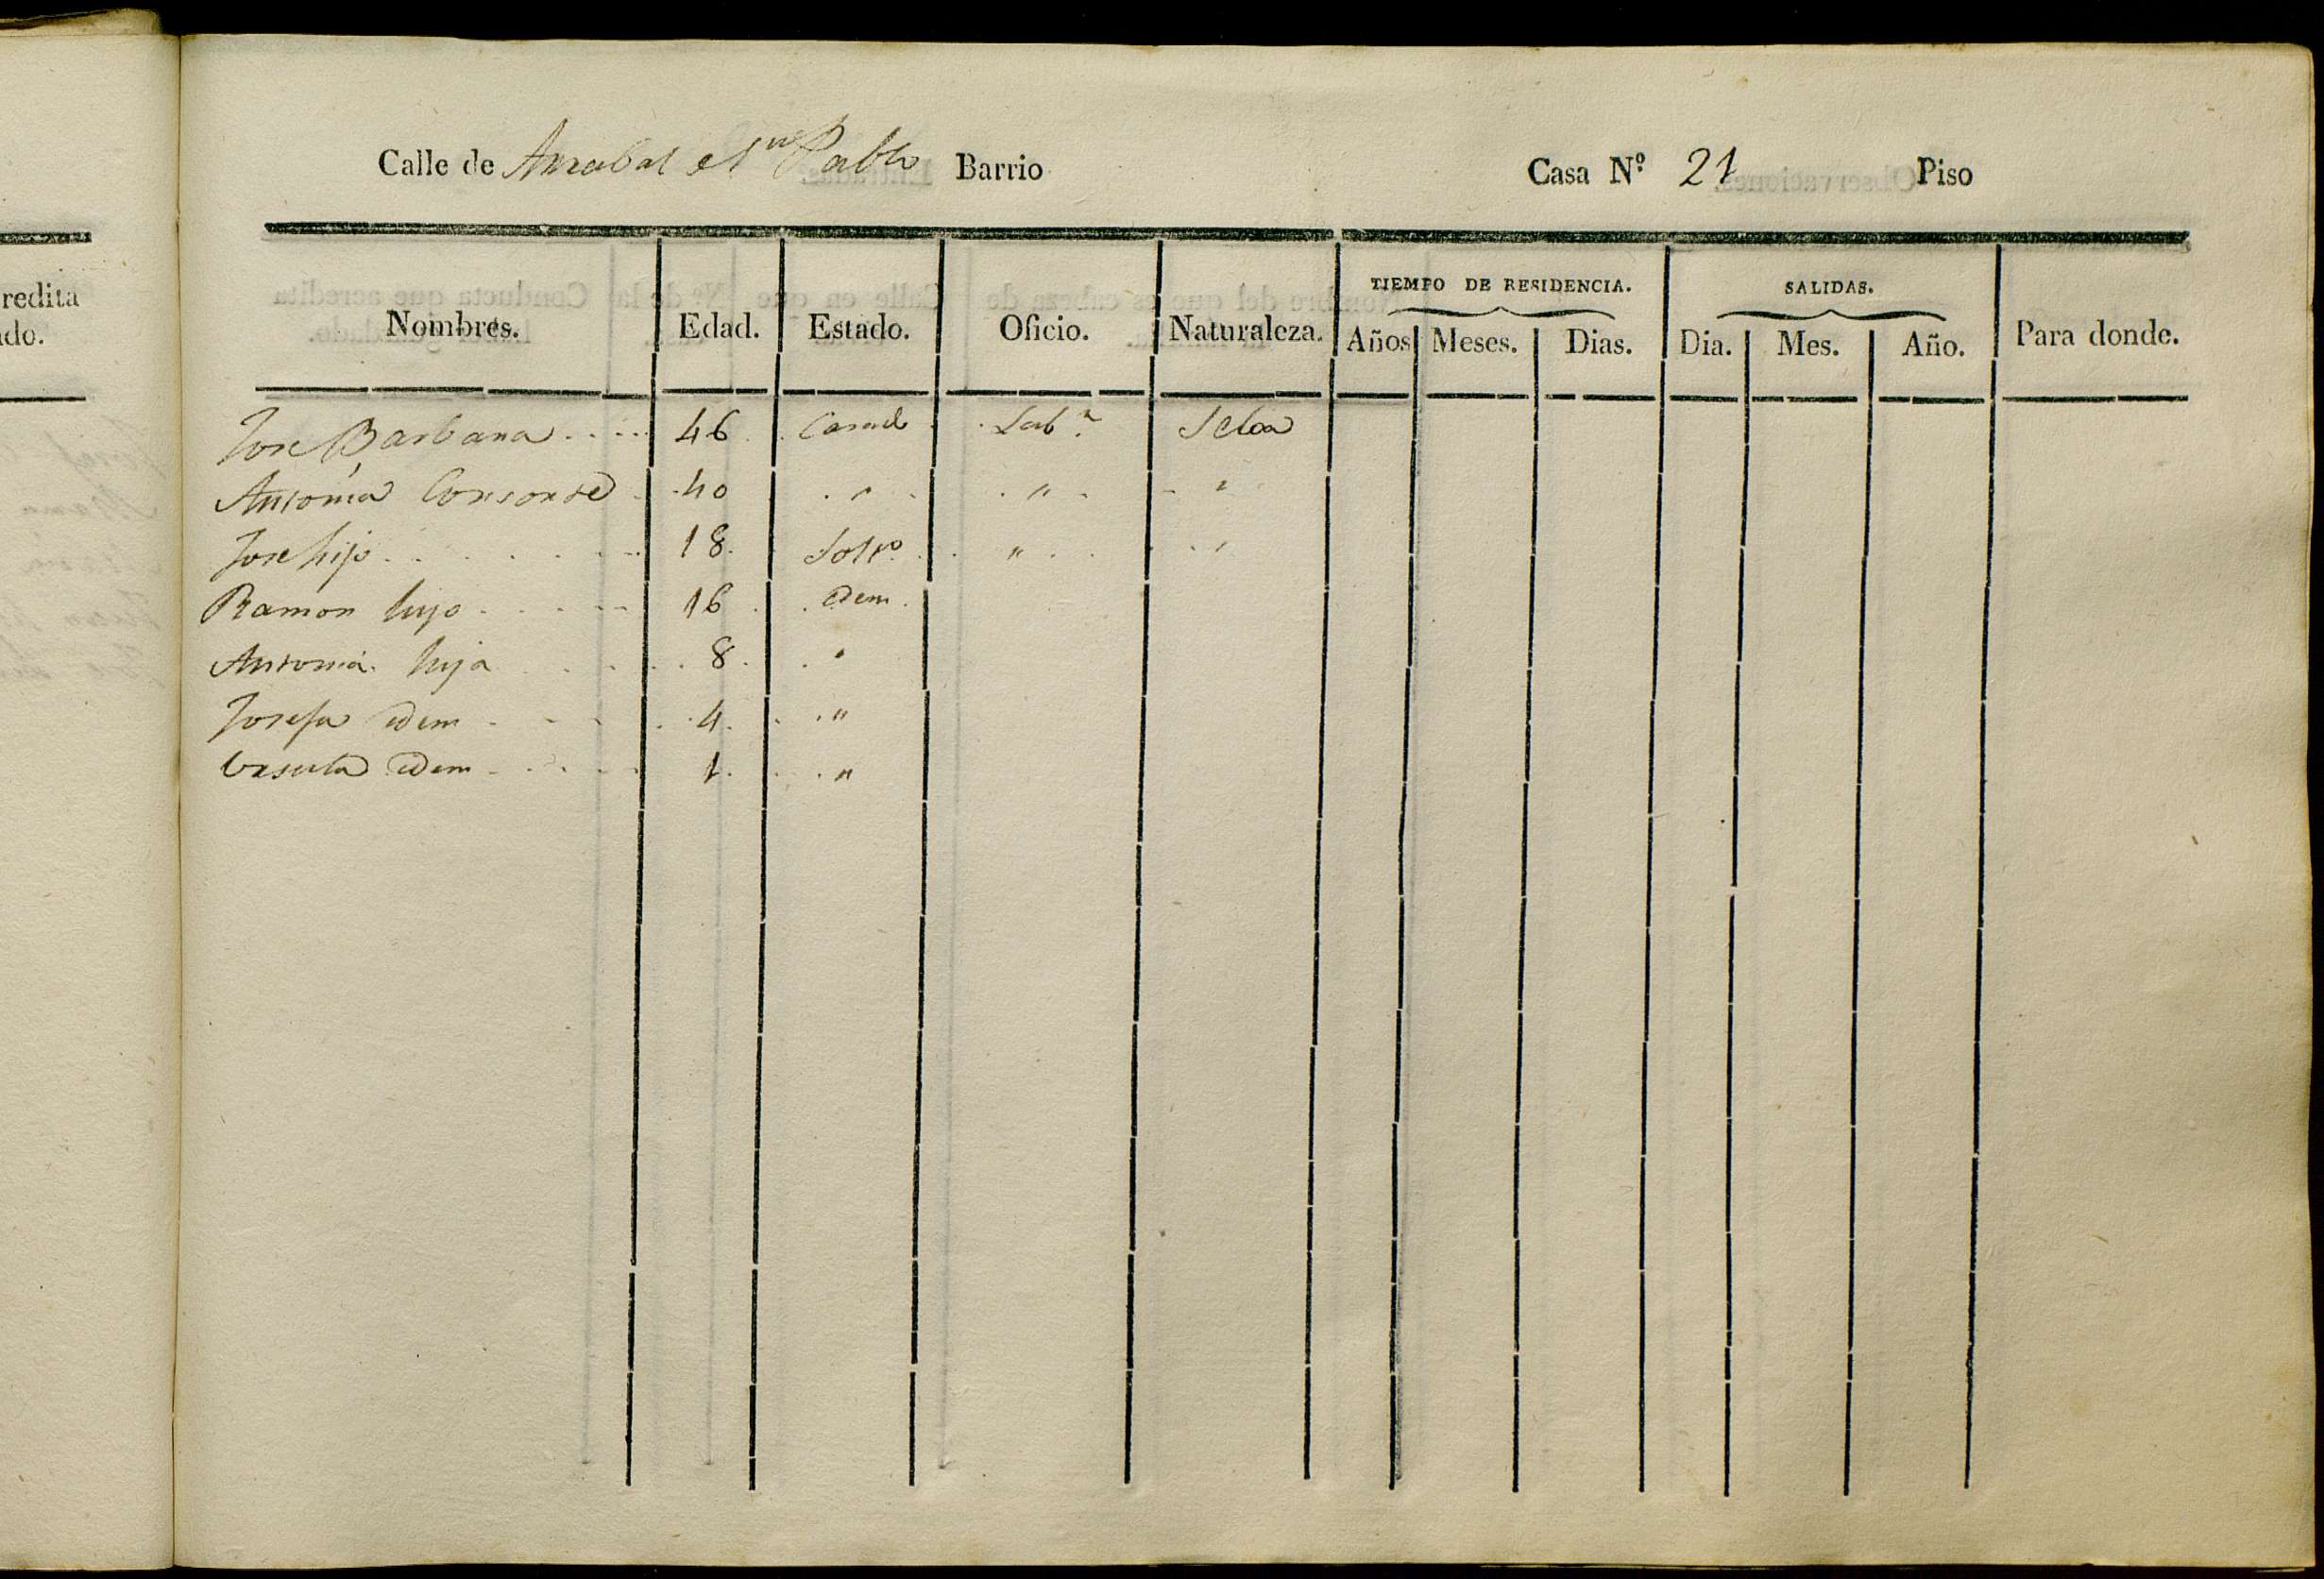 redita
do.
Calle de Arrabal de Sn Pablo Barrio Casa Nº 21 Piso
Nombres. Edad. Estado. Oficio. Naturaleza. TIEMPO DE RESIDENCIA. Años Meses. Dias. SALIDAS. Dia. Mes. Año. Para donde.
Jose Barbara 46 Casado Labr. Selva
Antonia Consorte 40 " " "
Jose hijo 18 Soltro. " "
Ramon hijo 16 idem
Antonia hija 8 "
Josefa idem 4 "
Ursula idem 1 "